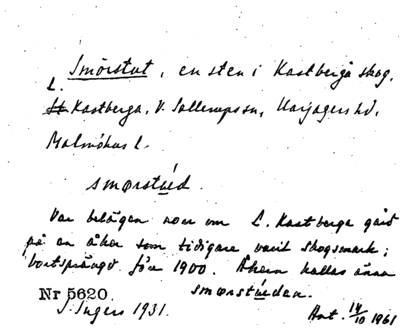 Smörstut, en sten i Kastberga skog,
L.
St. Kastberga, V. Sallerups sn, Harjagers hd,
Malmöhus l.
smørstúed.
Var belägen norr om L. Kastberga gård
på en åker som tidigare varit skogsmark;
bortsprängd före 1900. Åkern kallas ännu
Nr 5620. smørstúedan.
I. Ingers 1931. Ant. 14/10 1961